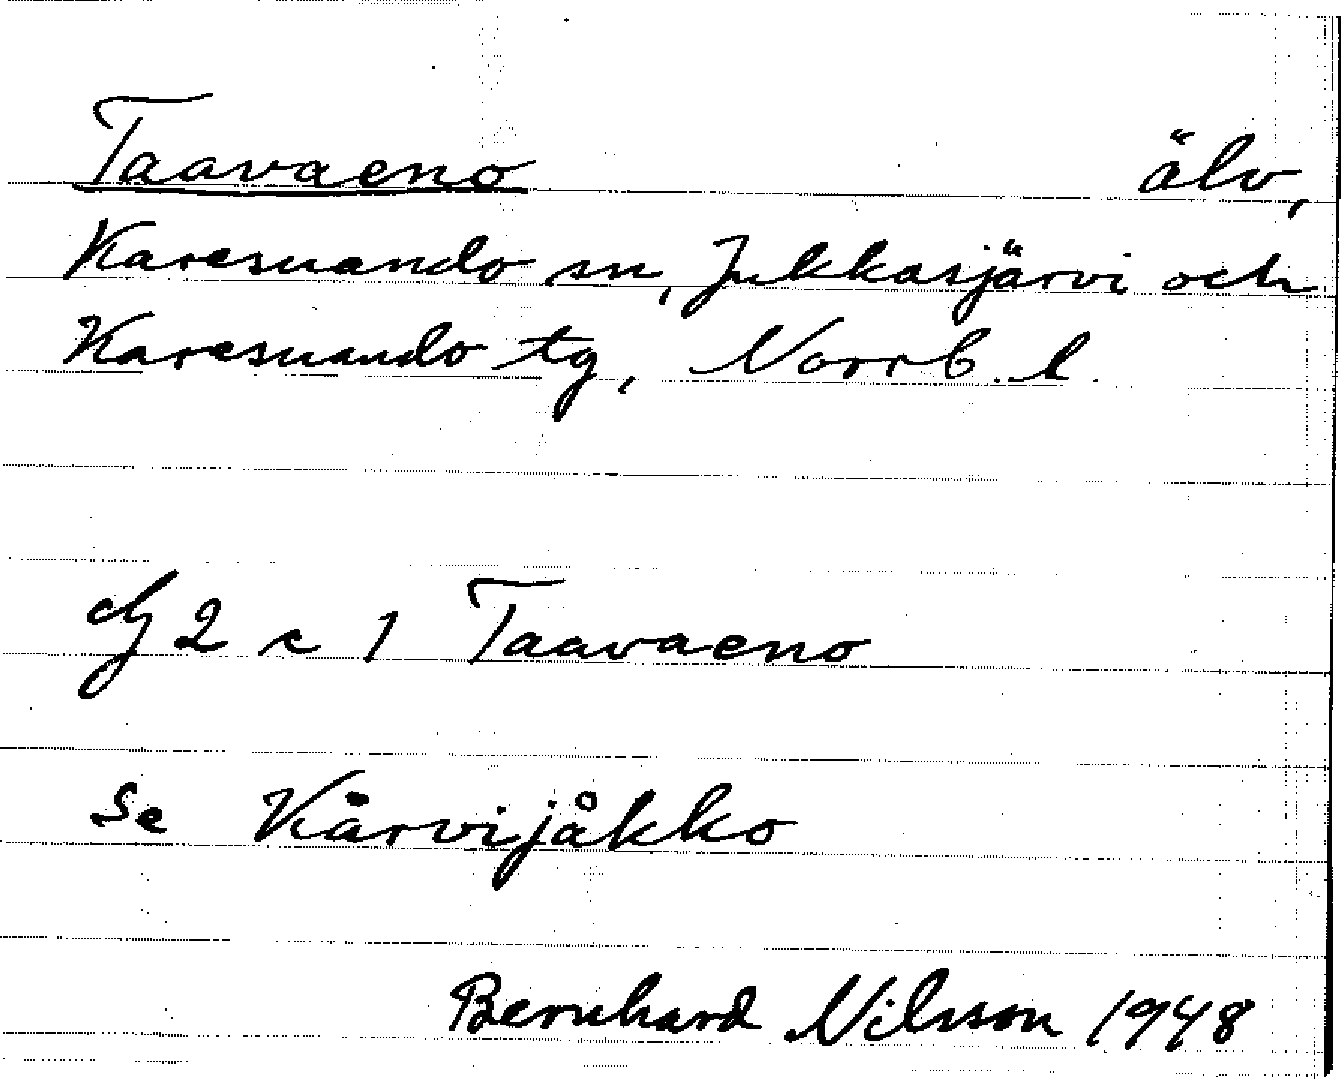 Taavaeno älv,
Karesuando sn, Jukkasjärvi och
Karesuando tg, Norrb. l.
2 c 1 Taavaeno
se Kärvijåkko
Bernhard Nilsson 1948